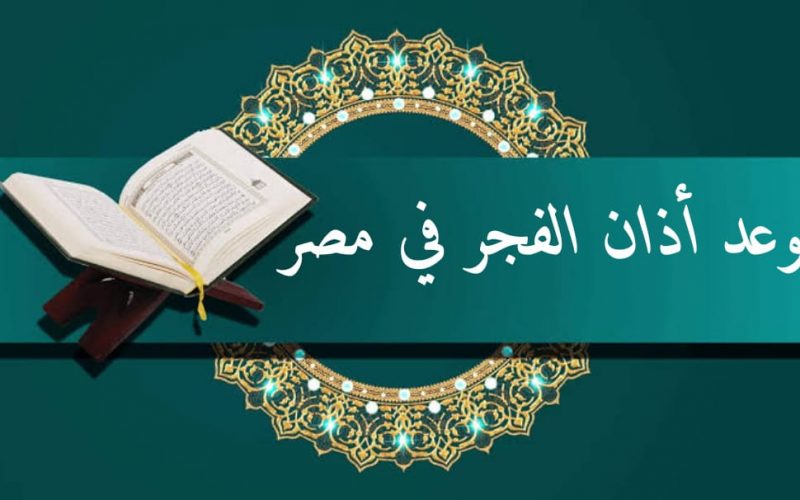 وعد أذان الفجر في مصر